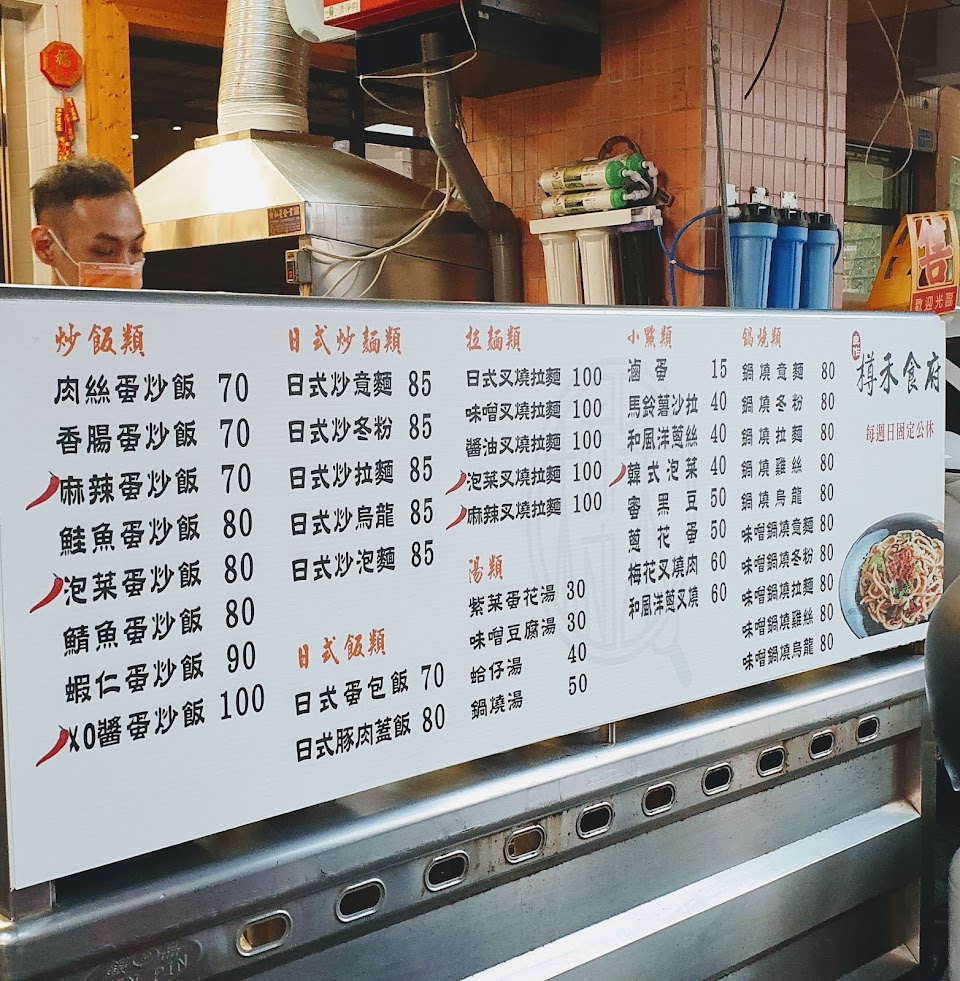 炒飯類
肉絲蛋炒飯 70
香腸蛋炒飯 70
麻辣蛋炒飯 70
鮭魚蛋炒飯 80
泡菜蛋炒飯 80
鯖魚蛋炒飯 80
蝦仁蛋炒飯 90
XO醬蛋炒飯 100
日式炒麵類
日式炒意麵 85
日式炒冬粉 85
日式炒拉麵 85
日式炒烏龍 85
日式炒泡麵 85
日式飯類
日式蛋包飯 70
日式豚肉蓋飯 80
拉麵類
日式叉燒拉麵 100
味噌叉燒拉麵 100
醬油叉燒拉麵 100
泡菜叉燒拉麵 100
麻辣叉燒拉麵 100
湯類
紫菜蛋花湯 30
味噌豆腐湯 30
蛤仔湯 40
鍋燒湯 50
小點類
滷蛋 15
馬鈴薯沙拉 40
和風洋蔥絲 40
韓式泡菜 40
蜜黑豆 50
蔥花蛋 50
梅花叉燒肉 60
和風洋蔥叉燒 60
鍋燒類
鍋燒意麵 80
鍋燒冬粉 80
鍋燒拉麵 80
鍋燒雞絲 80
鍋燒烏龍 80
味噌鍋燒意麵 80
味噌鍋燒冬粉 80
味噌鍋燒拉麵 80
味噌鍋燒雞絲 80
味噌鍋燒烏龍 80
樽禾食府
每週日固定公休
售
歡迎光臨